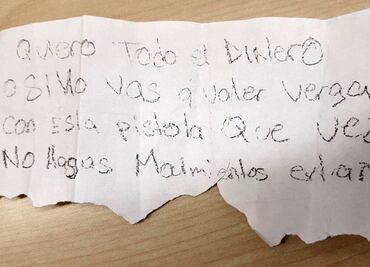 Quiero Todo el DiNerO
O SiNo Vas a valer verga
CON Esta pistola Que vez
NO Hagas Movimientos extra